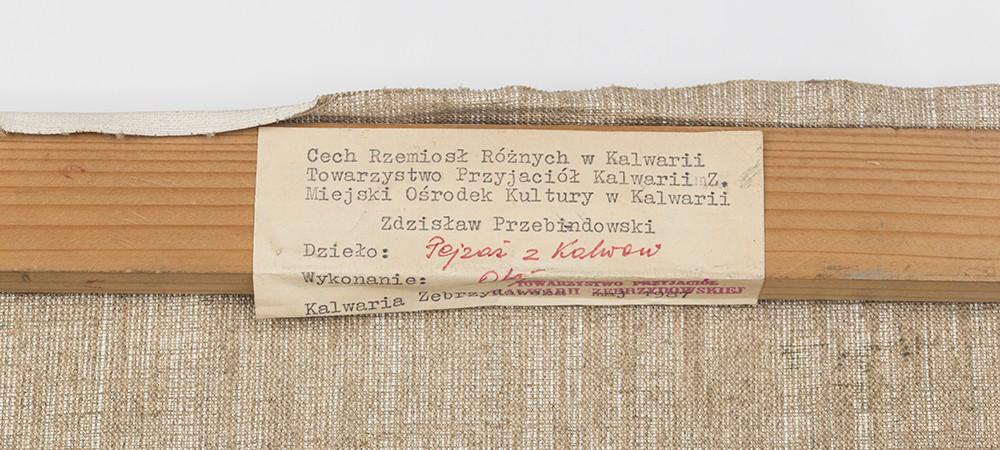 Cech Rzemiosł Różnych w Kalwarii
Towarzystwo Przyjaciół Kalwarii Z.
Miejski Ośrodek Kultury w Kalwarii
Zdzisław Przebindowski
Dzieło: Pejzaż z Kalwarii
Wykonanie:
TOWARZYSTWO PRZYJACIÓŁ
KALWARII ZEBRZYDOWSKIEJ
Kalwaria Zebrzydowska maj